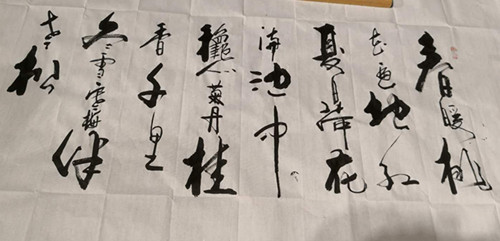 春暖桃
花遍地红
夏日荷花
满池中
龝菊丹桂
香千里
冬雪寒梅伴
青松